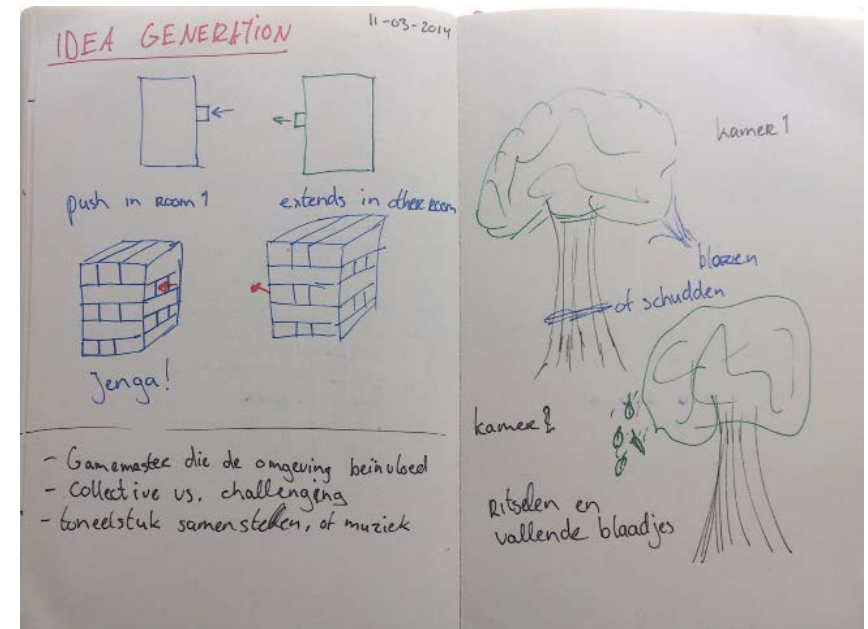 IDEA GENERATION
11-03-2014
push in ROOM 1
extends in other room
Jenga!
- Gamemaster die de omgeving beinvloed
- Collective vs. challenging
- toneelstuk samenstellen, of muziek
kamer 1
blazen
of schudden
kamer 2
Ritselen en
vallende blaadjes